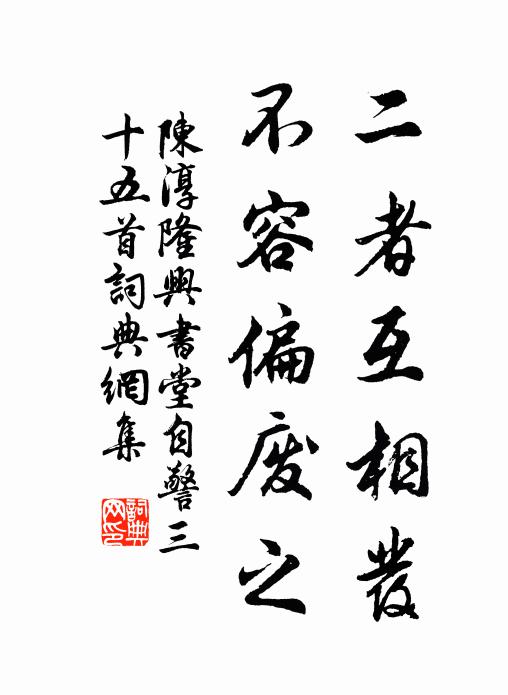 二者互相發
不容偏废之
陳淳隆興書堂自警三
十五首詞典網集
詞典网印